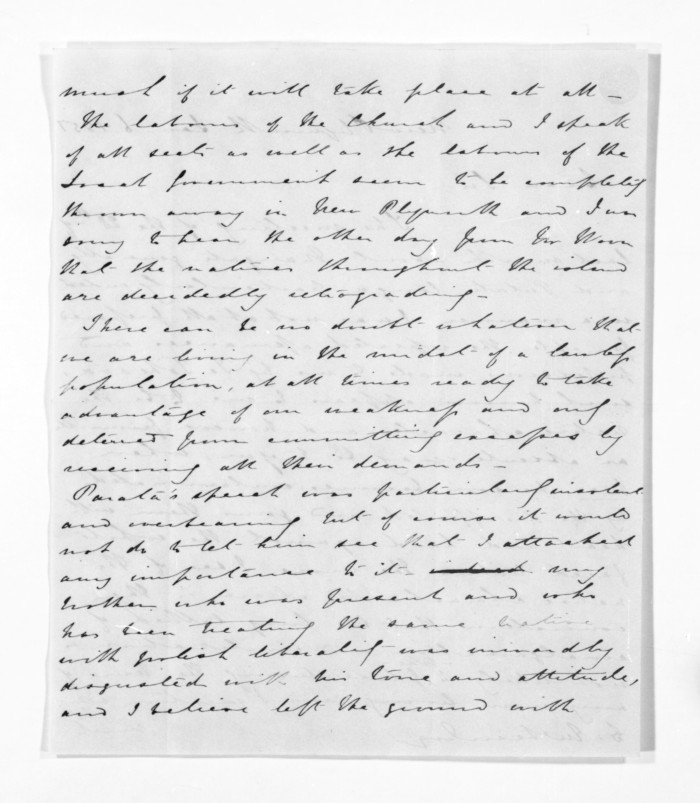 much if it will take place at all -
The labours of the Church and I speak
of all sects as well as the labours of the
Local Government seem to be completely
thrown away in New Plymouth and I was
sorry to hear the other day from Mr
that the natives throughout the island
are decidedly retrograding -
There can be no doubt whatever that
we are living in the midst of a lawless
population, at all times ready to take
advantage of our weakness and only
deterred from committing excesses by
receiving all their demands -
Parata's speech was particularly insolent
and overbearing but of course it would
not do to let him see that I attached
any importance to it - my
brother who was present and who
has been treating the same native
with foolish liberality was inwardly
disgusted with his tone and attitude,
and I believe left the ground with